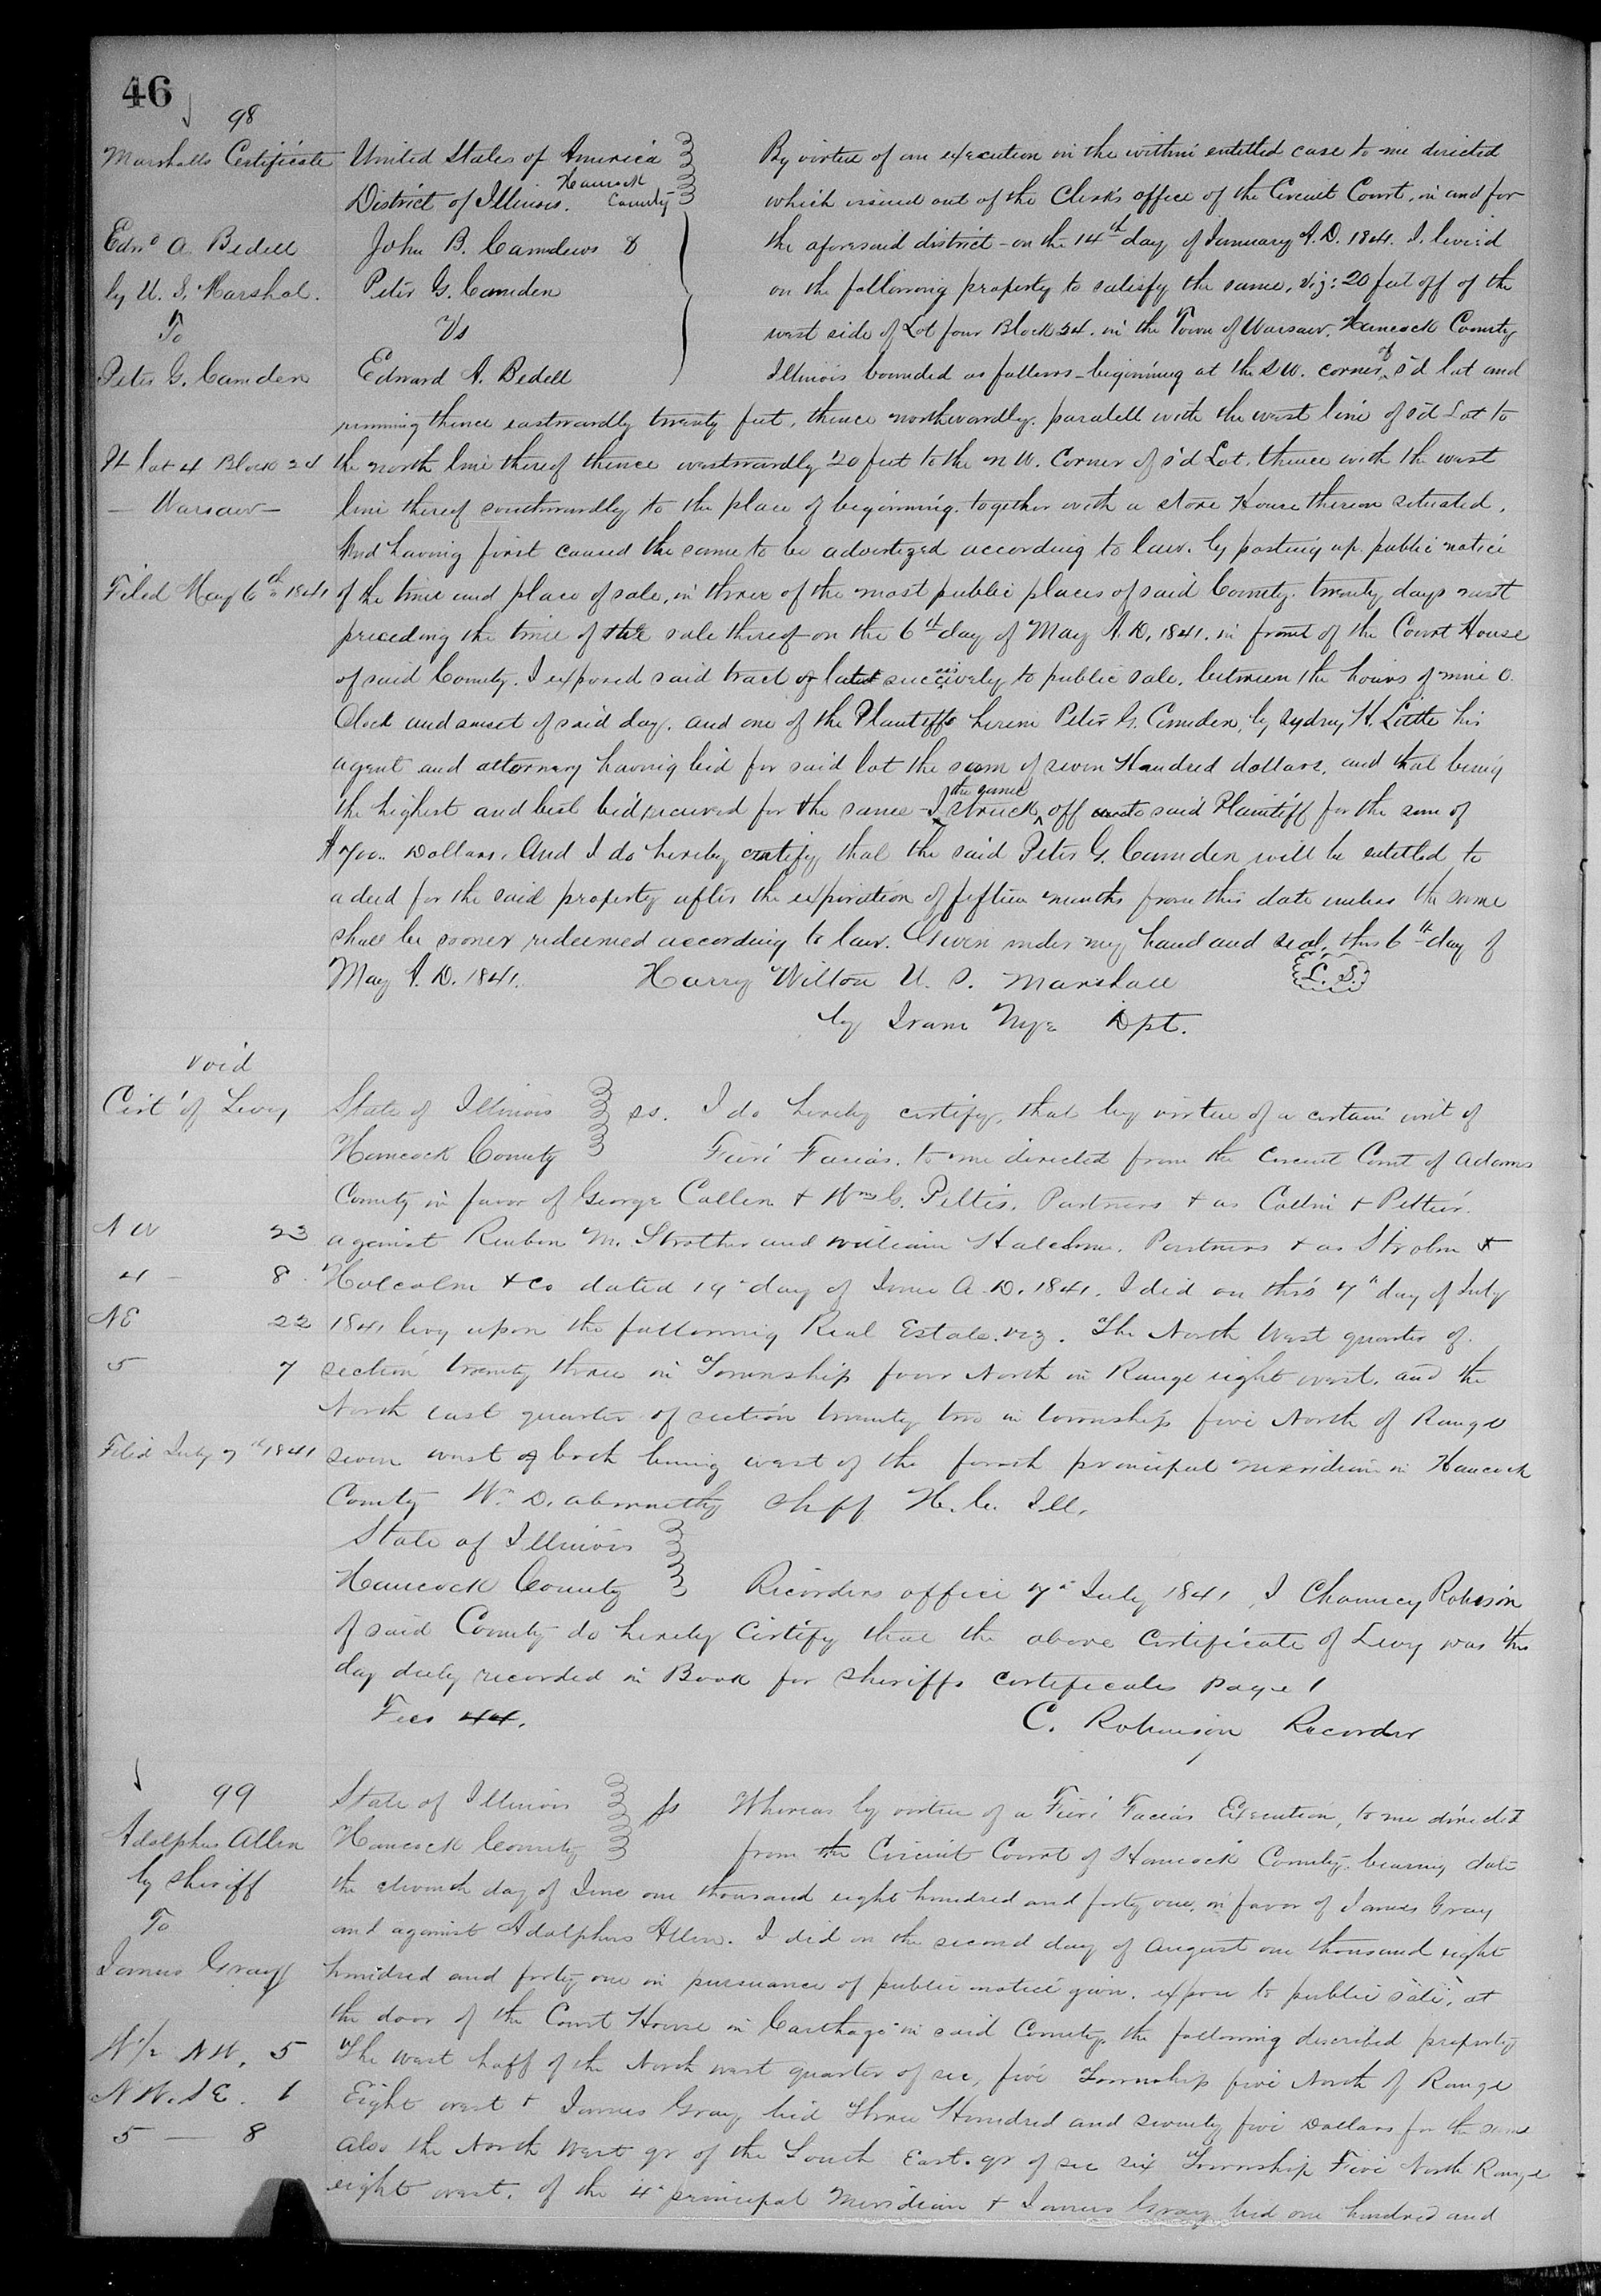 46
98
Marshalls Certificate
Edwd A. Bedell
by U. S. Marshal.
To
Peter G. Camden
Pt lot 4 Block 24
— Warsaw —
Filed May 6th 1841
United States of America
District of Illinois. Hancock County
John B. Camdews &
Peter G. Camden
Vs
Edward A. Bedell
By virtue of an execution in the within entitled case to me directed
which issued out of the Clerks office of the Circuit Court, in and for
the aforesaid district - on the 14th day of January A.D. 1841. I. levied
on the following property to satisfy the same, viz: 20 feet off of the
west side of Lot four Block 24. in the Town of Warsaw, Hancock County
Illinois bounded as follows - beginning at the S W. corner of s'd lot and
running thence eastwardly twenty feet, thence northwardly. paralell with the west line of s'd Lot to
the north line thereof thence westwardly 20 feet to the N W. Corner of s'd Lot, thence with the west
line thereof southwardly to the place of beginning. together with a store House thereon situated.
And having first caused the same to be advertized according to law. by posting up public notice
of the time and place of sale, in three of the most public places of said County. twenty days next
preceding the time of the sale thereof on the 6th day of May A. D, 1841. in front of the Court House
of said County. I exposed said tract of succesively to public sale, between the hours of nine O.
Clock and sunset of said day. and one of the Plantiffs herein Peter G. Camden, by Sydney H. Little his
agent and attorney having bid for said lot the sum of seven Hundred dollars, and that being
the highest and best bid received for the same - I struck the same off to said Plaintiff for the sum of
$700.. Dollars. And I do hereby certify that the said Peter G. Camden will be entitled to
a deed for the said property after the expiration of fifteen months from this date unless the same
shall be sooner redeemed according to law. Given under my hand and seal, this 6th day of
May A. D. 1841. Harry Wilton U. S. Marshall L. S.
by Iram Nye Dpt.
Void
Cert' of Levy
N W 23
4 — 8
NE 22
5 7
Filed July 7th 1841
State of Illinois ss. I do hereby certify, that by virtue of a certain writ of
Hancock County Fieri Facias. to me directed from the Circuit Court of Adams
County in favor of George Collin & Wm G. Pettis, Partners & as Collin & Pettis
against Reuben M. Strother and William Holcolm, Partners & as &
Holcolm & Co dated 19th day of June A. D. 1841. I did on this 7th day of July
1841 levy upon the following Real Estate. viz. The North West quarter of
section twenty three in Township four North in Range eight west. and the
North east quarter of section twenty two in township five North of Range
seven west of both being west of the fourth principal meridian in Hancock
County Wm D. Abernethy Shff H. C. Ill.
State of Illinois
Hancock County Recorders office 7th July 1841, I Chauncy Robison
of said County do hereby Certify that the above certificate of Levy was this
day duly recorded in Book for Sheriffs certificates page 1
Fees 44. C. Robinson Recorder
99
Adolphus Allen
by Sheriff
To
James Gray
W 1/2 N W, 5
N W. S E. 6
5 — 8
State of Illinois ss Whereas by virtue of a Fieri Facias Execution, to me directed
Hancock County from the Circuit Court of Hancock County. bearing date
the eleventh day of June one thousand eight hundred and forty one, in favor of James Gray
and against Adolphus Allen. I did on the second day of August one thousand eight
hundred and forty one in pursuance of public notice given. expose to public sale, at
the door of the Court House in Carthage in said County. the following described property
The west half of the North west quarter of sec, five Township five North of Range
Eight west & James Gray bid Three Hundred and seventy five Dollars for the same
also the North West qr of the South East. qr of sec six Township Five North Range
eight west. of the 4th principal Meridian & James Gray bid one hundred and